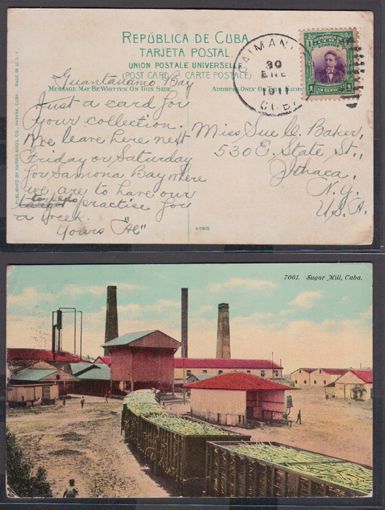 REPÚBLICA DE CUBA
TARJETA POSTAL
UNION POSTALE UNIVERSELLE
(POST CARD / CARTE POSTALE)
MESSAGE MAY BE WRITTEN ON THIS SIDE
ADDRESS ONLY ON
30
ENE
1911
CUBA
Guantanamo Bay
Just a card for
your collection.
We leave here next
Friday or Saturday
for Samona Bay where
we are to have our
torpedo
practise for
a week.
Yours "Al"
Miss Sue C. Baker,
530 E. State St.,
Ithaca,
N.Y.
U.S.A.
7001. Sugar Mill, Cuba.